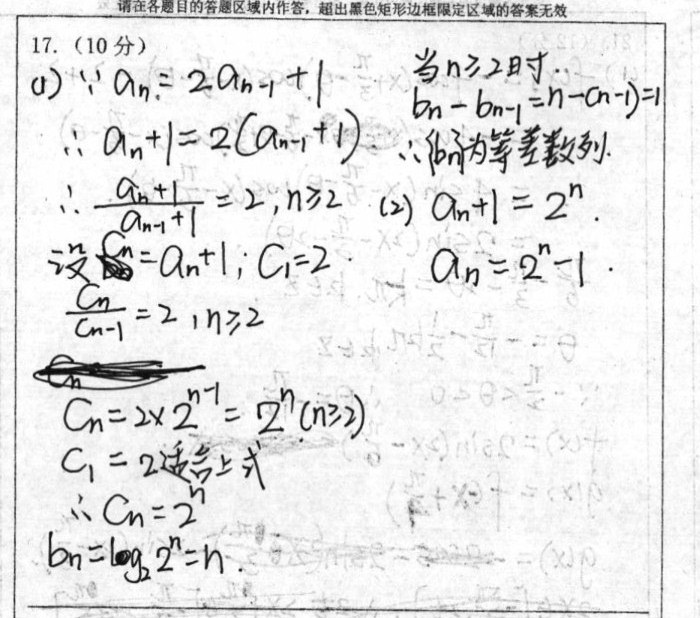 请在各题目的答题区域内作答，超出黑色矩形边框限定区域的答案无效
17.（10分）
(1) ∵ aₙ = 2aₙ₋₁ + 1
∴ aₙ + 1 = 2(aₙ₋₁ + 1)
∴ (aₙ + 1)/(aₙ₋₁ + 1) = 2, n ≥ 2
设 Cₙ = aₙ + 1, C₁ = 2.
Cₙ/Cₙ₋₁ = 2, n ≥ 2
Cₙ = 2 × 2ⁿ⁻¹ = 2ⁿ (n ≥ 2)
C₁ = 2 适合上式
∴ Cₙ = 2ⁿ
bₙ = log₂ 2ⁿ = n.
当 n ≥ 2 时.
bₙ - bₙ₋₁ = n - (n-1) = 1
∴ {bₙ} 为等差数列.
(2) aₙ + 1 = 2ⁿ.
aₙ = 2ⁿ - 1.